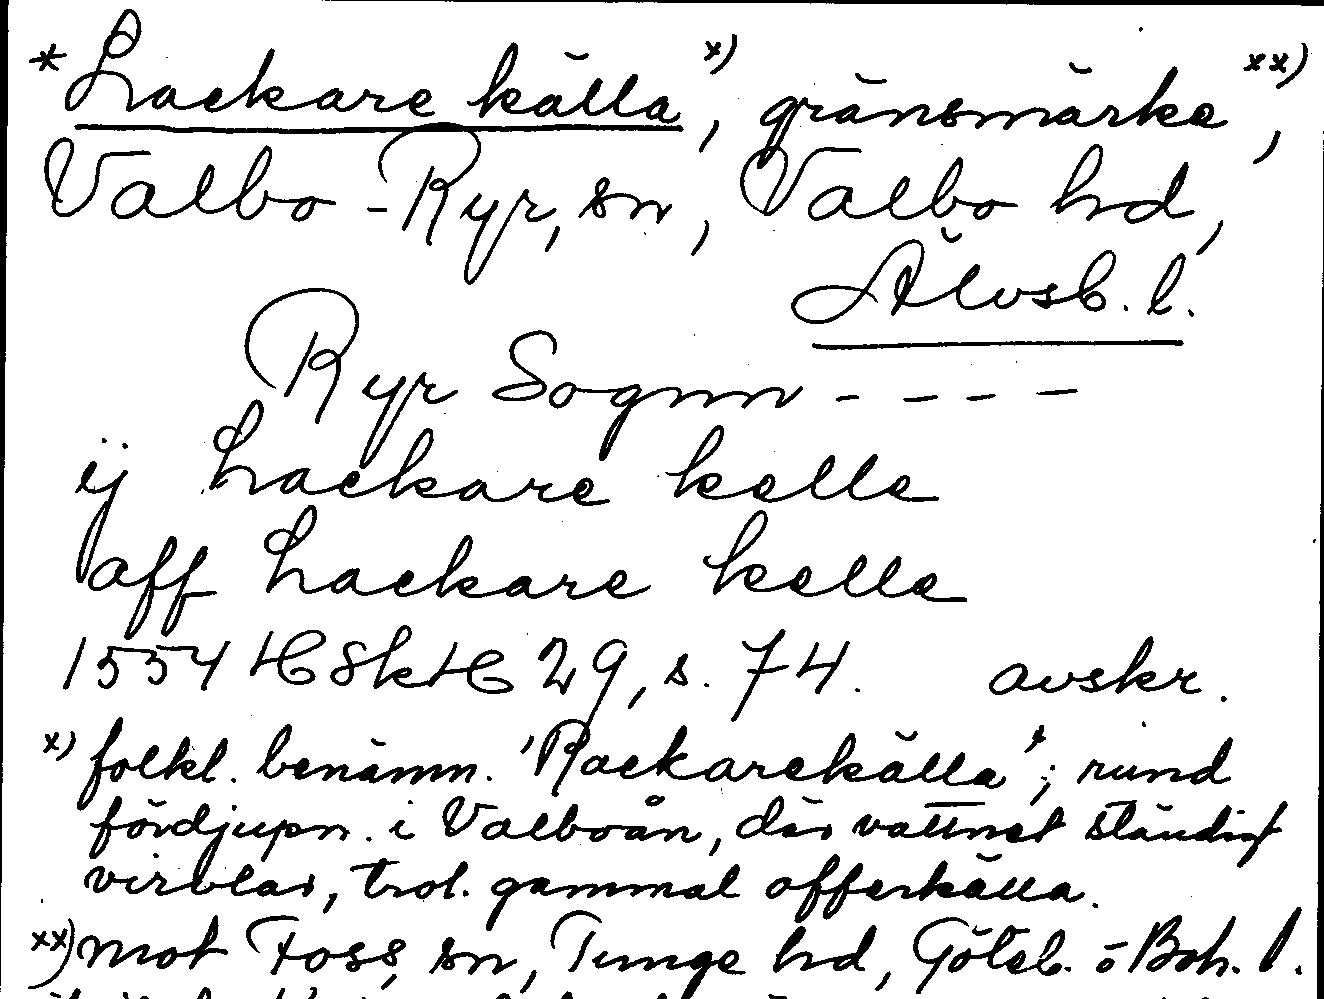 * Lackare källa x), gränsmärke xx),
Valbo-Ryr, sn, Valbo hd,
Älvsb. l.
Ryr Sognn - - - -
ij Lackare kelle
aff Lackare kelle
1554 HSkH 29, s. 74. avskr.
x) folkl. benämn. 'Rackarekälla'; rund
fördjupn. i Valboån, där vattnet ständigt
virvlar, trol. gammal offerkälla.
xx) mot Foss, sn, Tunge hd, Göteb. o Boh. l.